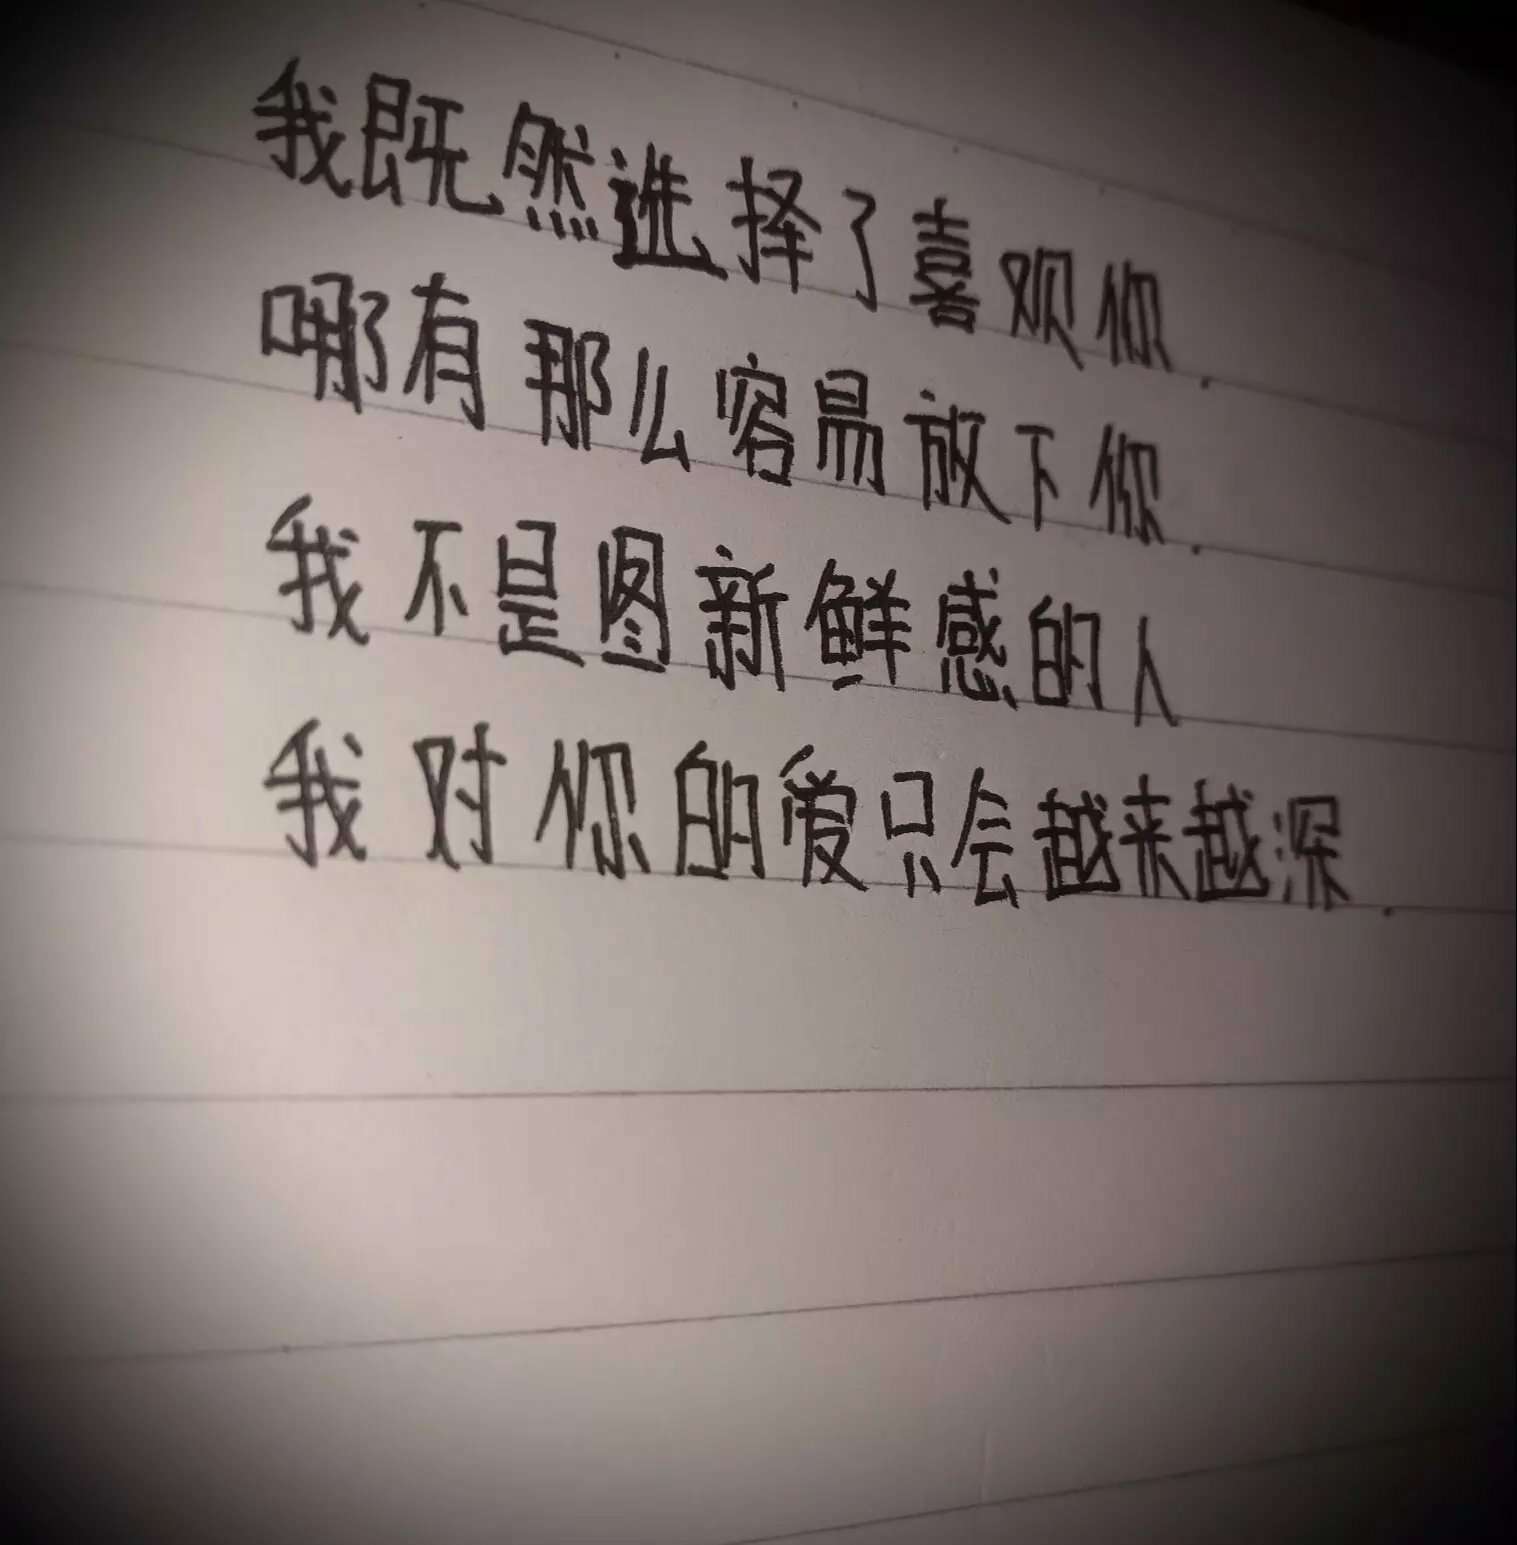 我既然选择了喜欢你.
哪有那么容易放下你.
我不是图新鲜感的人
我对你的爱只会越来越深.